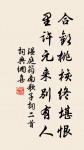 合歡桃核終堪恨
里許元來別有人
溫庭筠南歌子詞二首
詞典網書